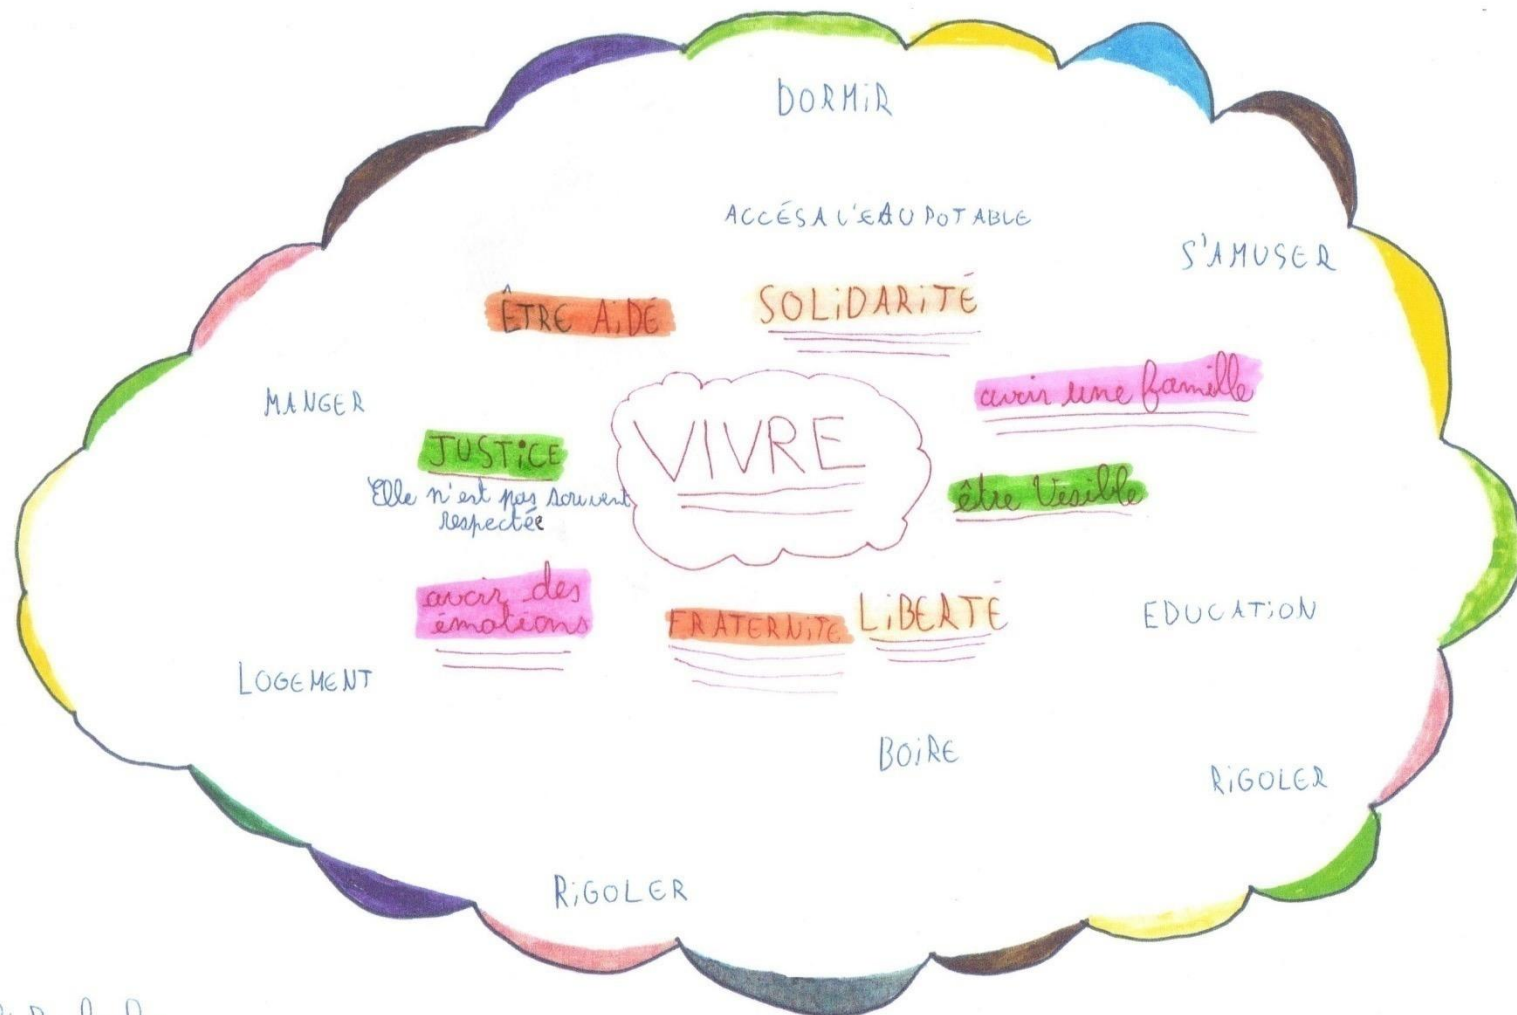 DORMIR
ACCÉS A L'EAU POTABLE
S'AMUSER
ÊTRE AIDÉ
SOLIDARITÉ
avoir une famille
MANGER
JUSTICE
Elle n'est pas souvent
respectée
VIVRE
être Visible
avoir des
émotions
FRATERNITE
LIBERTÉ
EDUCATION
LOGEMENT
BOIRE
RIGOLER
RIGOLER